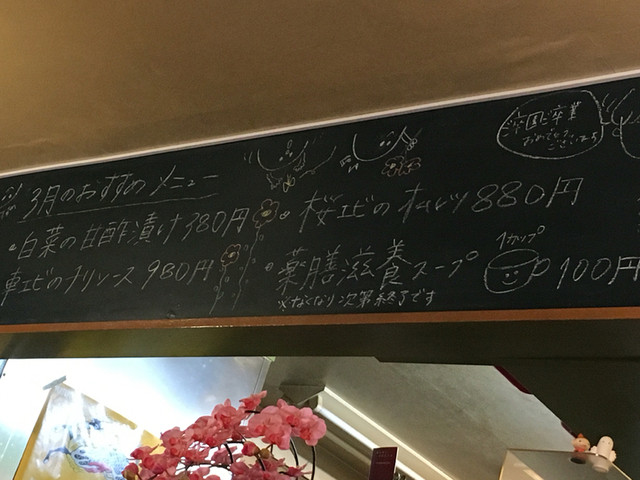 3月のおすすめメニュー
・白菜の甘酢漬け 380円
車エビのチリソース 980円
・桜エビのオムレツ 880円
・薬膳滋養スープ 1カップ 100円
※なくなり次第終了です
ご卒園ご卒業
おめでとう
ございます